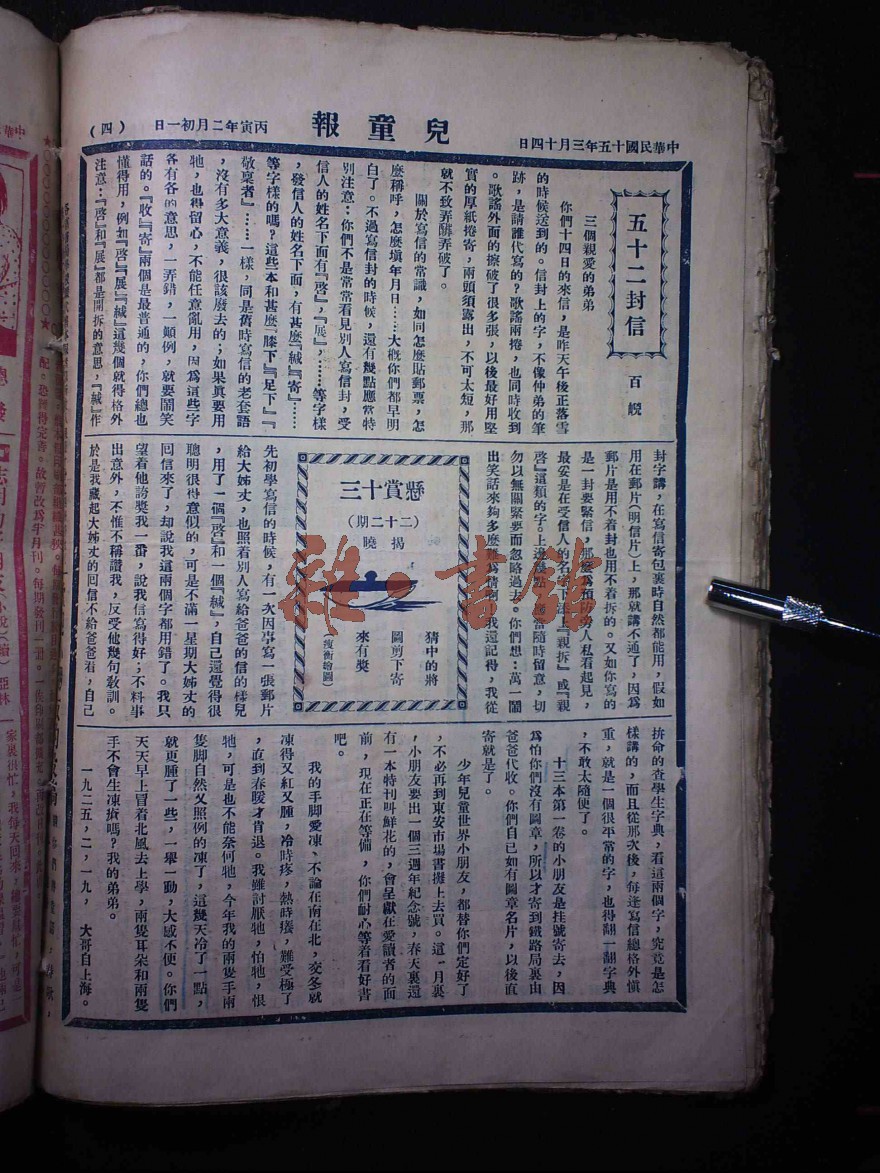 中華民國十五年三月十四日
兒童報
丙寅年二月初一日
（四）
五十二封信
百嵈
三個親愛的弟弟
你們十四日的來信，是昨天午後正落雪
的時候送到的。信封上的字，不像仲弟的筆
跡，是請誰代寫的？歌謠兩捲，也同時收到
。歌謠外面的擦破了很多張，以後最好用堅
實的厚紙捲寄，兩頭須露出，不可太短，那
就不致弄髒弄破了。
關於寫信的常識，如同怎麼貼郵票，怎
麼稱呼，怎麼塡年月日……大概你們都早明
白了。不過寫信封的時候，還有幾點應當特
別注意：你們不是常常看見別人寫信封，受
信人的姓名下面有『啓』，『展』，……等字樣
，發信人的姓名下面，有甚麼『緘』『寄』……
等字樣的嗎？這些本和甚麼『膝下』『足下』『
敬稟者』……一樣，同是舊時寫信的老套語
，沒有多大意義，很該廢去的；如果眞要用
牠，也得留心，不能任意亂用，因爲這些字
各有各的意思，一弄錯，一顚倒，就要鬧笑
話的。『收』『寄』兩個是最普通的，你們總也
懂得用，例如『啓』『展』『緘』這幾個就得格外
注意：『啓』和『展』都是開拆的意思，『緘』作
封字講，在寫信寄包裹時自然都能用，假如
用在郵片（明信片）上，那就講不通了，因爲
郵片是用不着封也用不着拆的。又如你寫的
是一封要緊信，那麼爲預防旁人私看起見，
最妥是在受信人的名字下添上『親拆』或『親
啓』這類的字。上邊幾點，應當隨時留意，切
勿以無關緊要而忽略過去。你們想：萬一鬧
出笑話來夠多麼難爲情啊！我還記得，我從
懸賞十三
（二十二期）
揭曉
猜中的將
圖剪下寄
來有獎
（瘦衡繪圖）
先初學寫信的時候，有一次因事寫一張郵片
給大姊丈，也照着別人寫給爸爸的信的樣兒
，用了一個『啓』和一個『緘』，自己還覺得很
聰明很得意似的，可是不滿一星期大姊丈的
回信來了，却說我這兩個字都用錯了。我只
望着他誇獎我一番，說我信寫得好；不料事
出意外，不惟不稱讚我，反受他幾句敎訓。
於是我藏起大姊丈的回信不給爸爸看，自己
拚命的查學生字典，看這兩個字，究竟是怎
樣講的，而且從那次後，每逢寫信總格外愼
重，就是一個很平常的字，也得翻一翻字典
，不敢太隨便了。
十三本第一卷的小朋友是挂號寄去，因
爲怕你們沒有圖章，所以才寄到鐵路局裏由
爸爸代收。你們自己如有圖章名片，以後直
寄就是了。
少年兒童世界小朋友，都替你們定好了
，不必再到東安市場書攤上去買。這一月裏
，小朋友要出一個三週年紀念號，春天裏還
有一本特刊叫鮮花的，會呈獻在愛讀者的面
前，現在正在等備，你們耐心等着看好書
吧。
我的手脚愛凍、不論在南在北，交冬就
凍得又紅又腫，冷時疼，熱時癢，難受極了
，直到春暖才肯退。我雖討厭牠，怕牠，恨
牠，可是也不能奈何牠，今年我的兩隻手兩
隻脚自然又照例的凍了，這幾天冷了一點，
就更腫了一些，一舉一動，大感不便。你們
天天早上冒着北風去上學，兩隻耳朵和兩隻
手不會生凍瘡嗎？我的弟弟。
一九二五，二，一九，　大哥自上海。